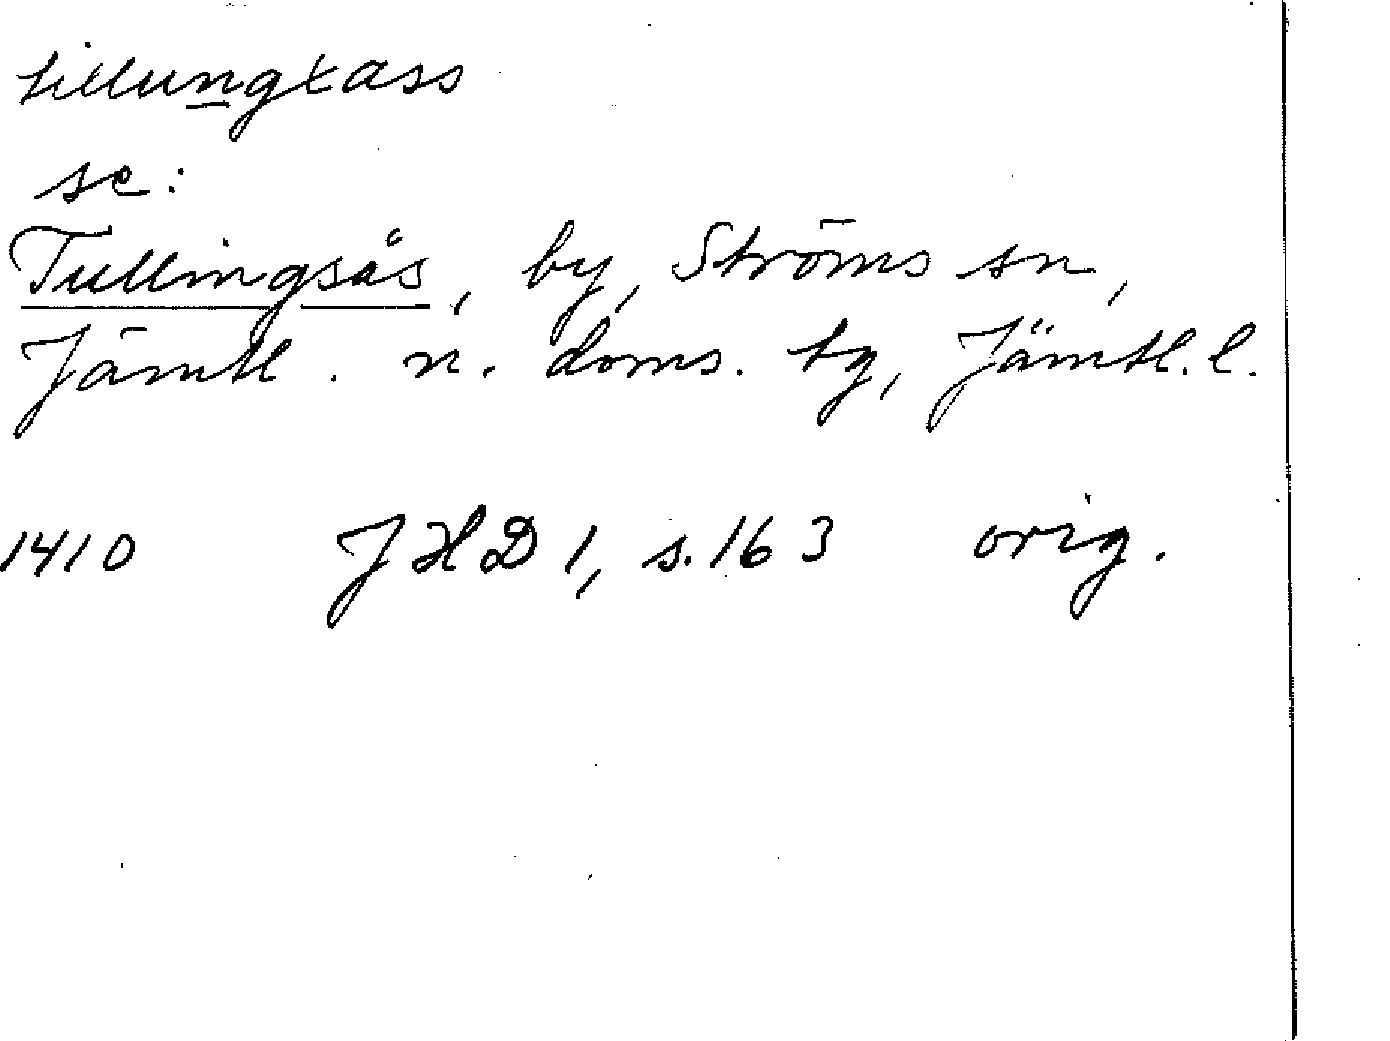 tillungxass
se:
Tullingsås, by, Ströms sn,
Jämtl. n. doms. tg, Jämtl. l.
1410 JHD 1, s. 163 orig.